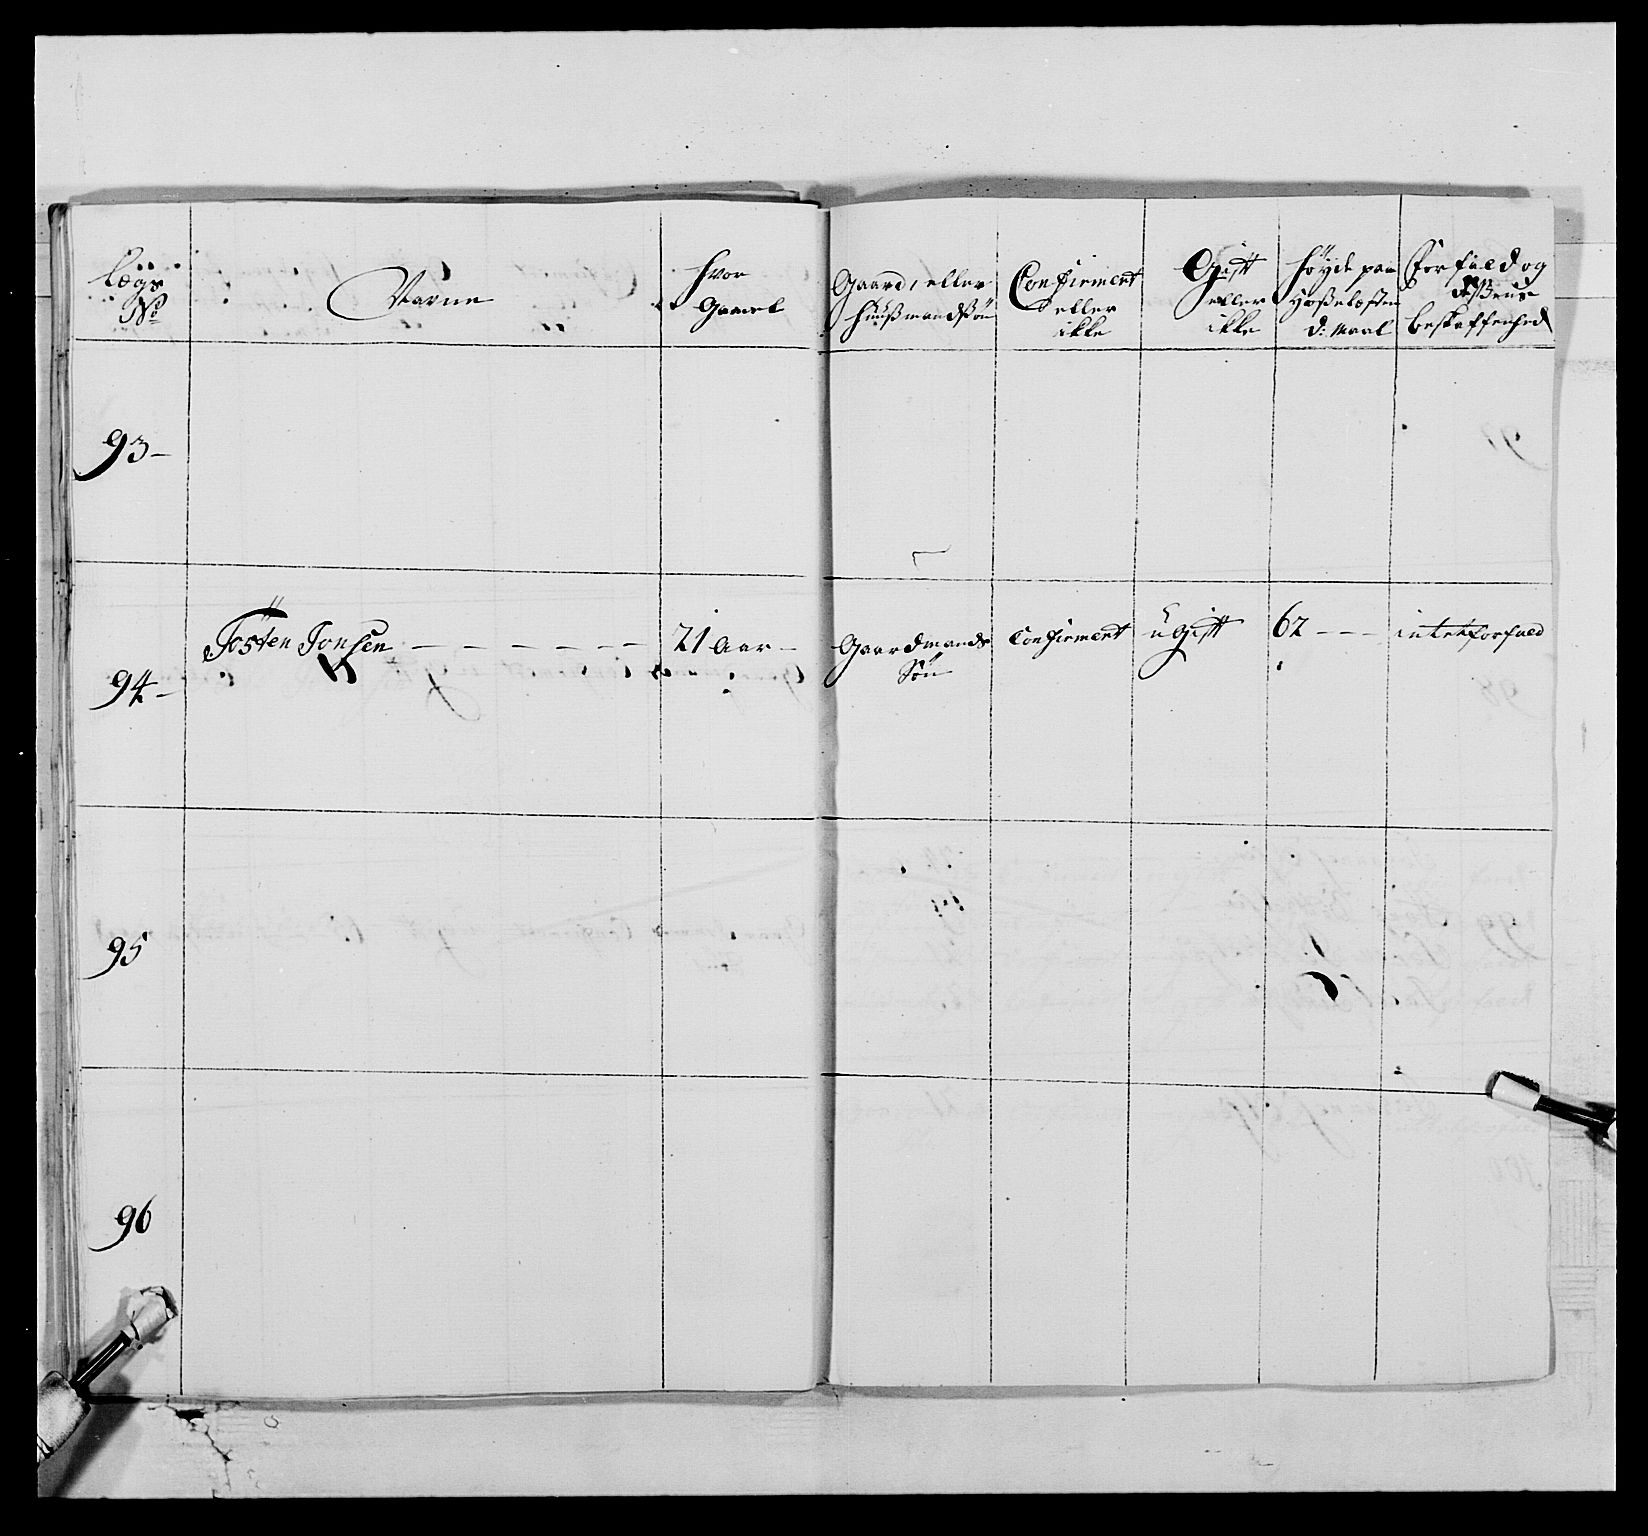 Lægs No
Navne
hvor Gamel
Gaard, eller Huusmandssøn
Confirmert eller ikke
Gift eller ikke
Høyde paa Hoßelæsten d: Maal
Forfald og deßens beskaffenhed
93-
94- Tosten Jonsen - - - - - - - 21 Aar - Gaardmands Søn Confirmert ugift 62 - - - intet forfald
95
96